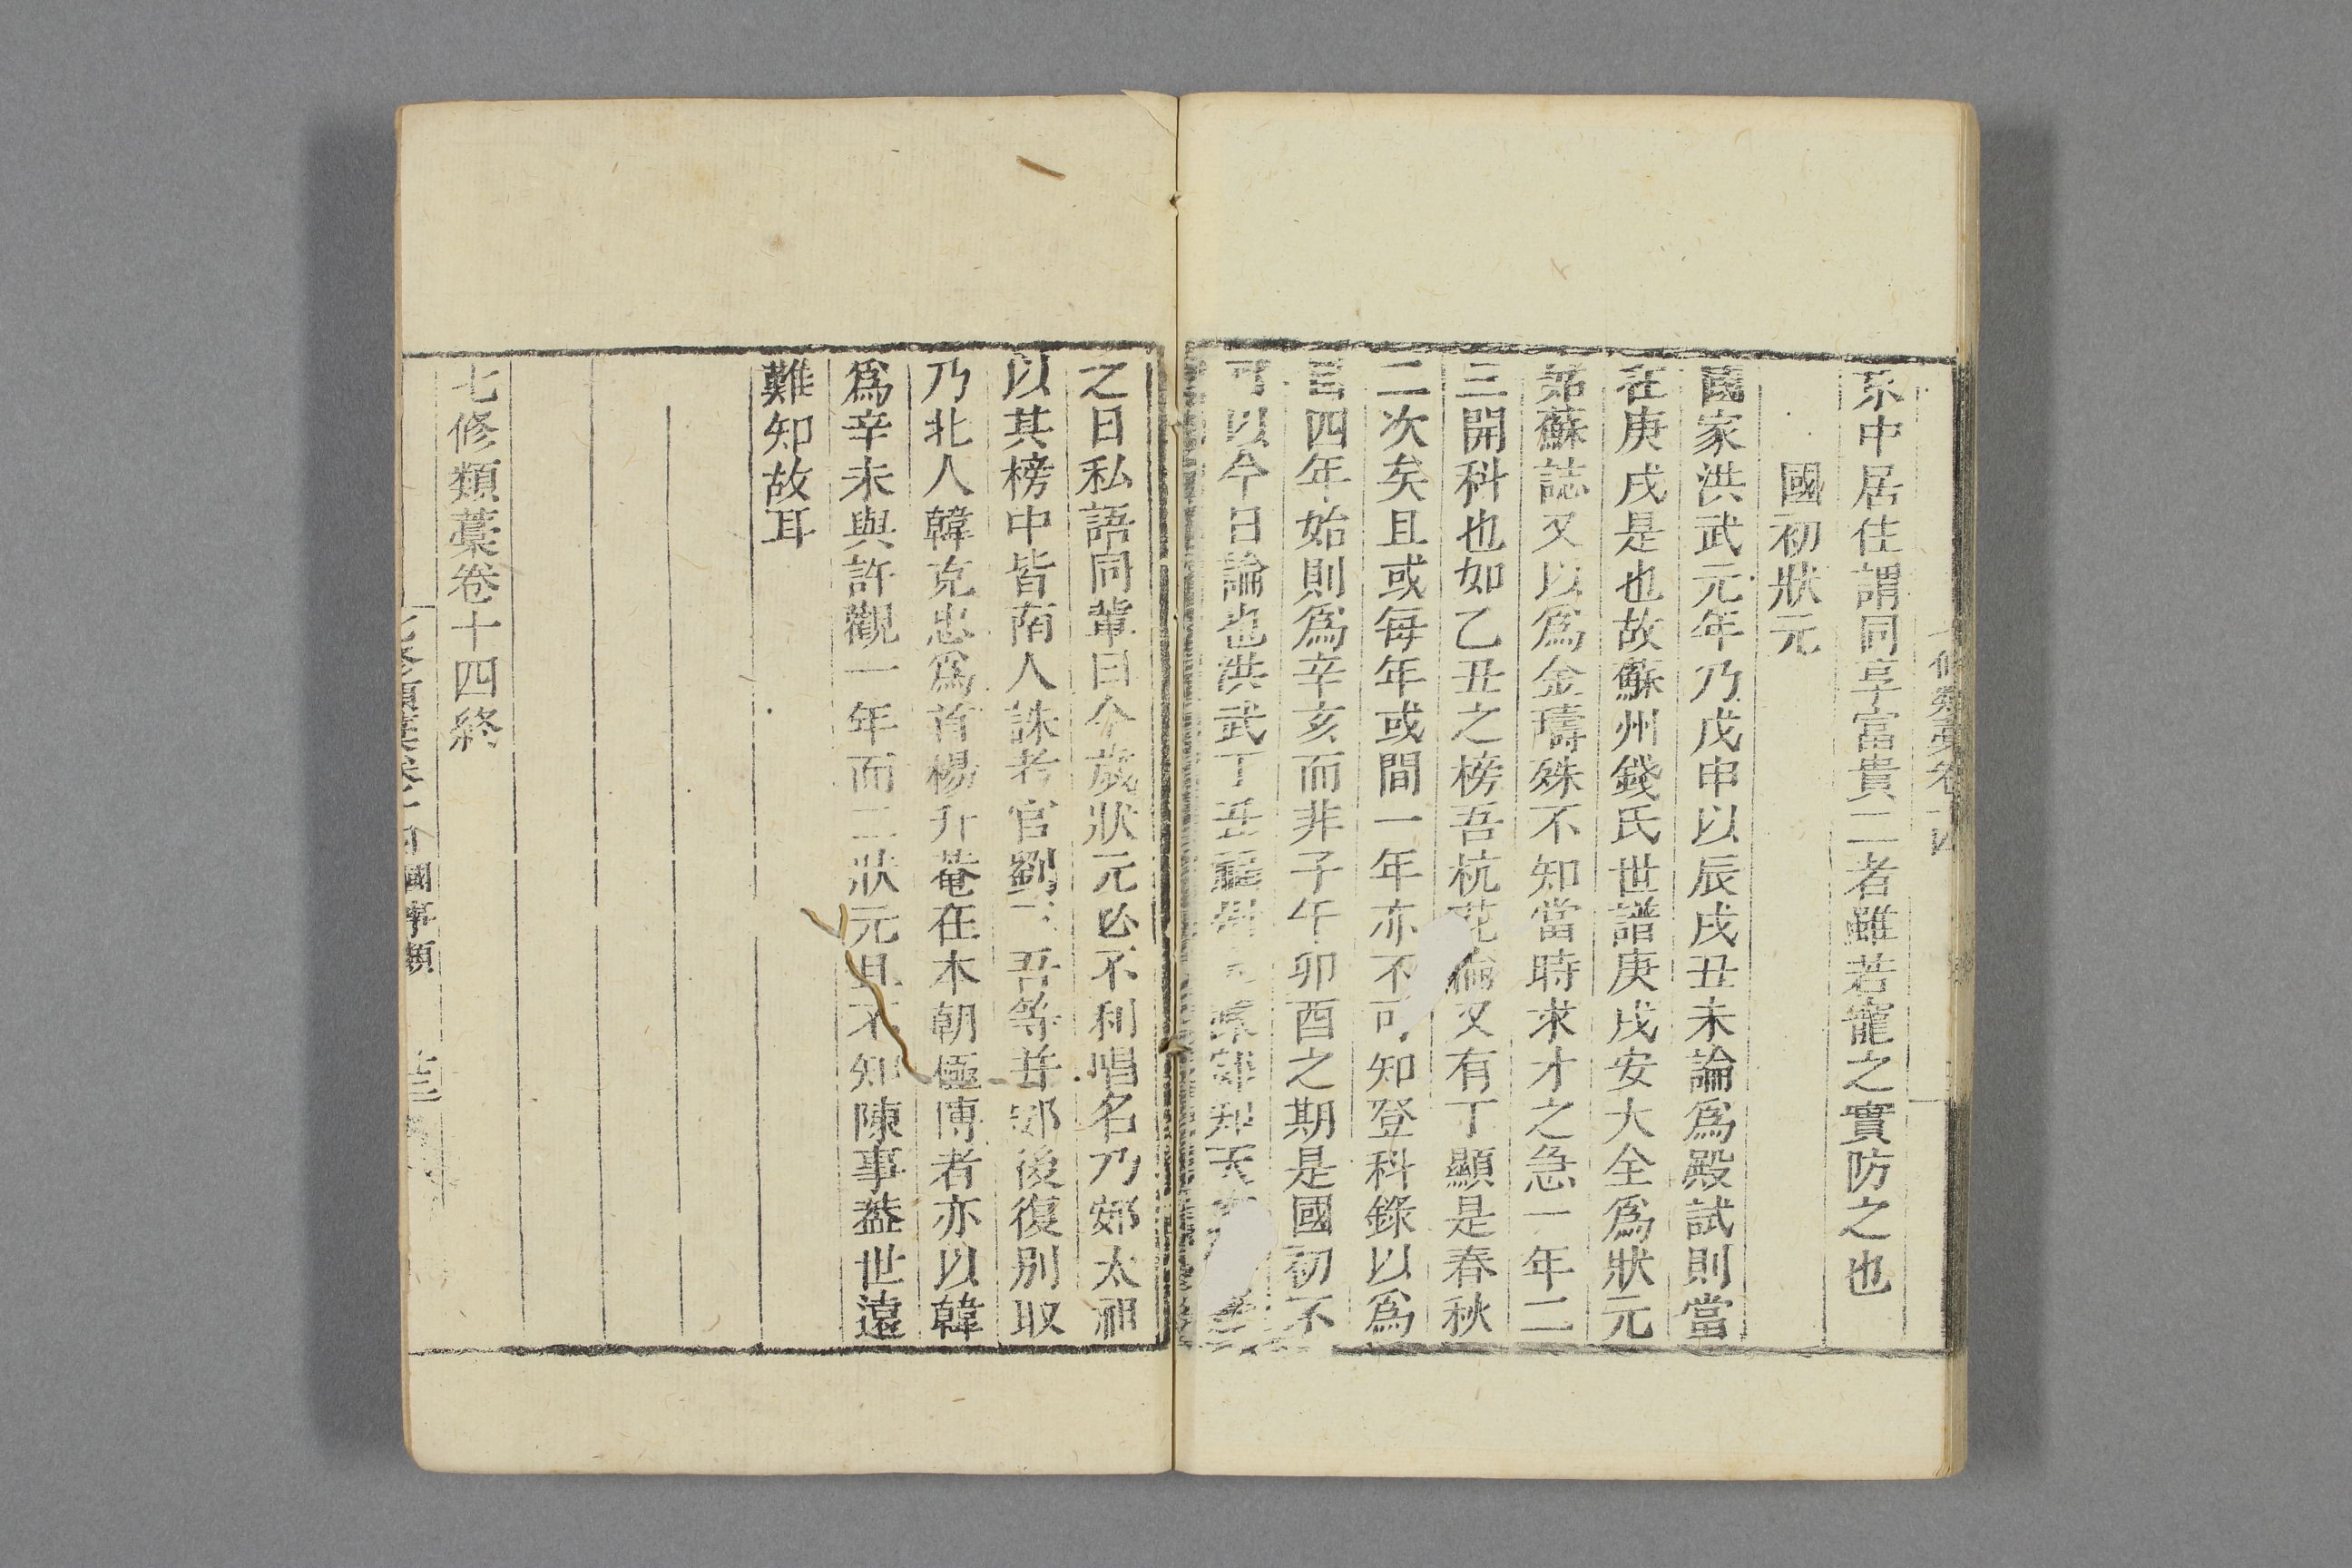 京中居住謂同享富貴二者雖若寵之實防之也
國初狀元
國家洪武元年乃戊申以辰戌丑未論爲殿試則當
在庚戌是也故蘇州錢氏世譜庚戌安大全爲狀元
蘇誌又以爲金璹殊不知當時求才之急一年二
三開科也如乙丑之榜吾杭花倫又有丁顯是春秋
二次矣且或每年或間一年亦不可知登科錄以爲
四年始則爲辛亥而非子午卯酉之期是國初不
可以今日論也洪武丁丑
之日私語同輩曰今歲狀元必不利唱名乃郊太祖
以其榜中皆南人誅考官劉吾等並郊後復別取
乃北人韓克忠爲首楊升菴在本朝極博者亦以韓
爲辛未與許觀一年而二狀元且不知陳事葢世遠
難知故耳
七修類藁卷十四終
國事類